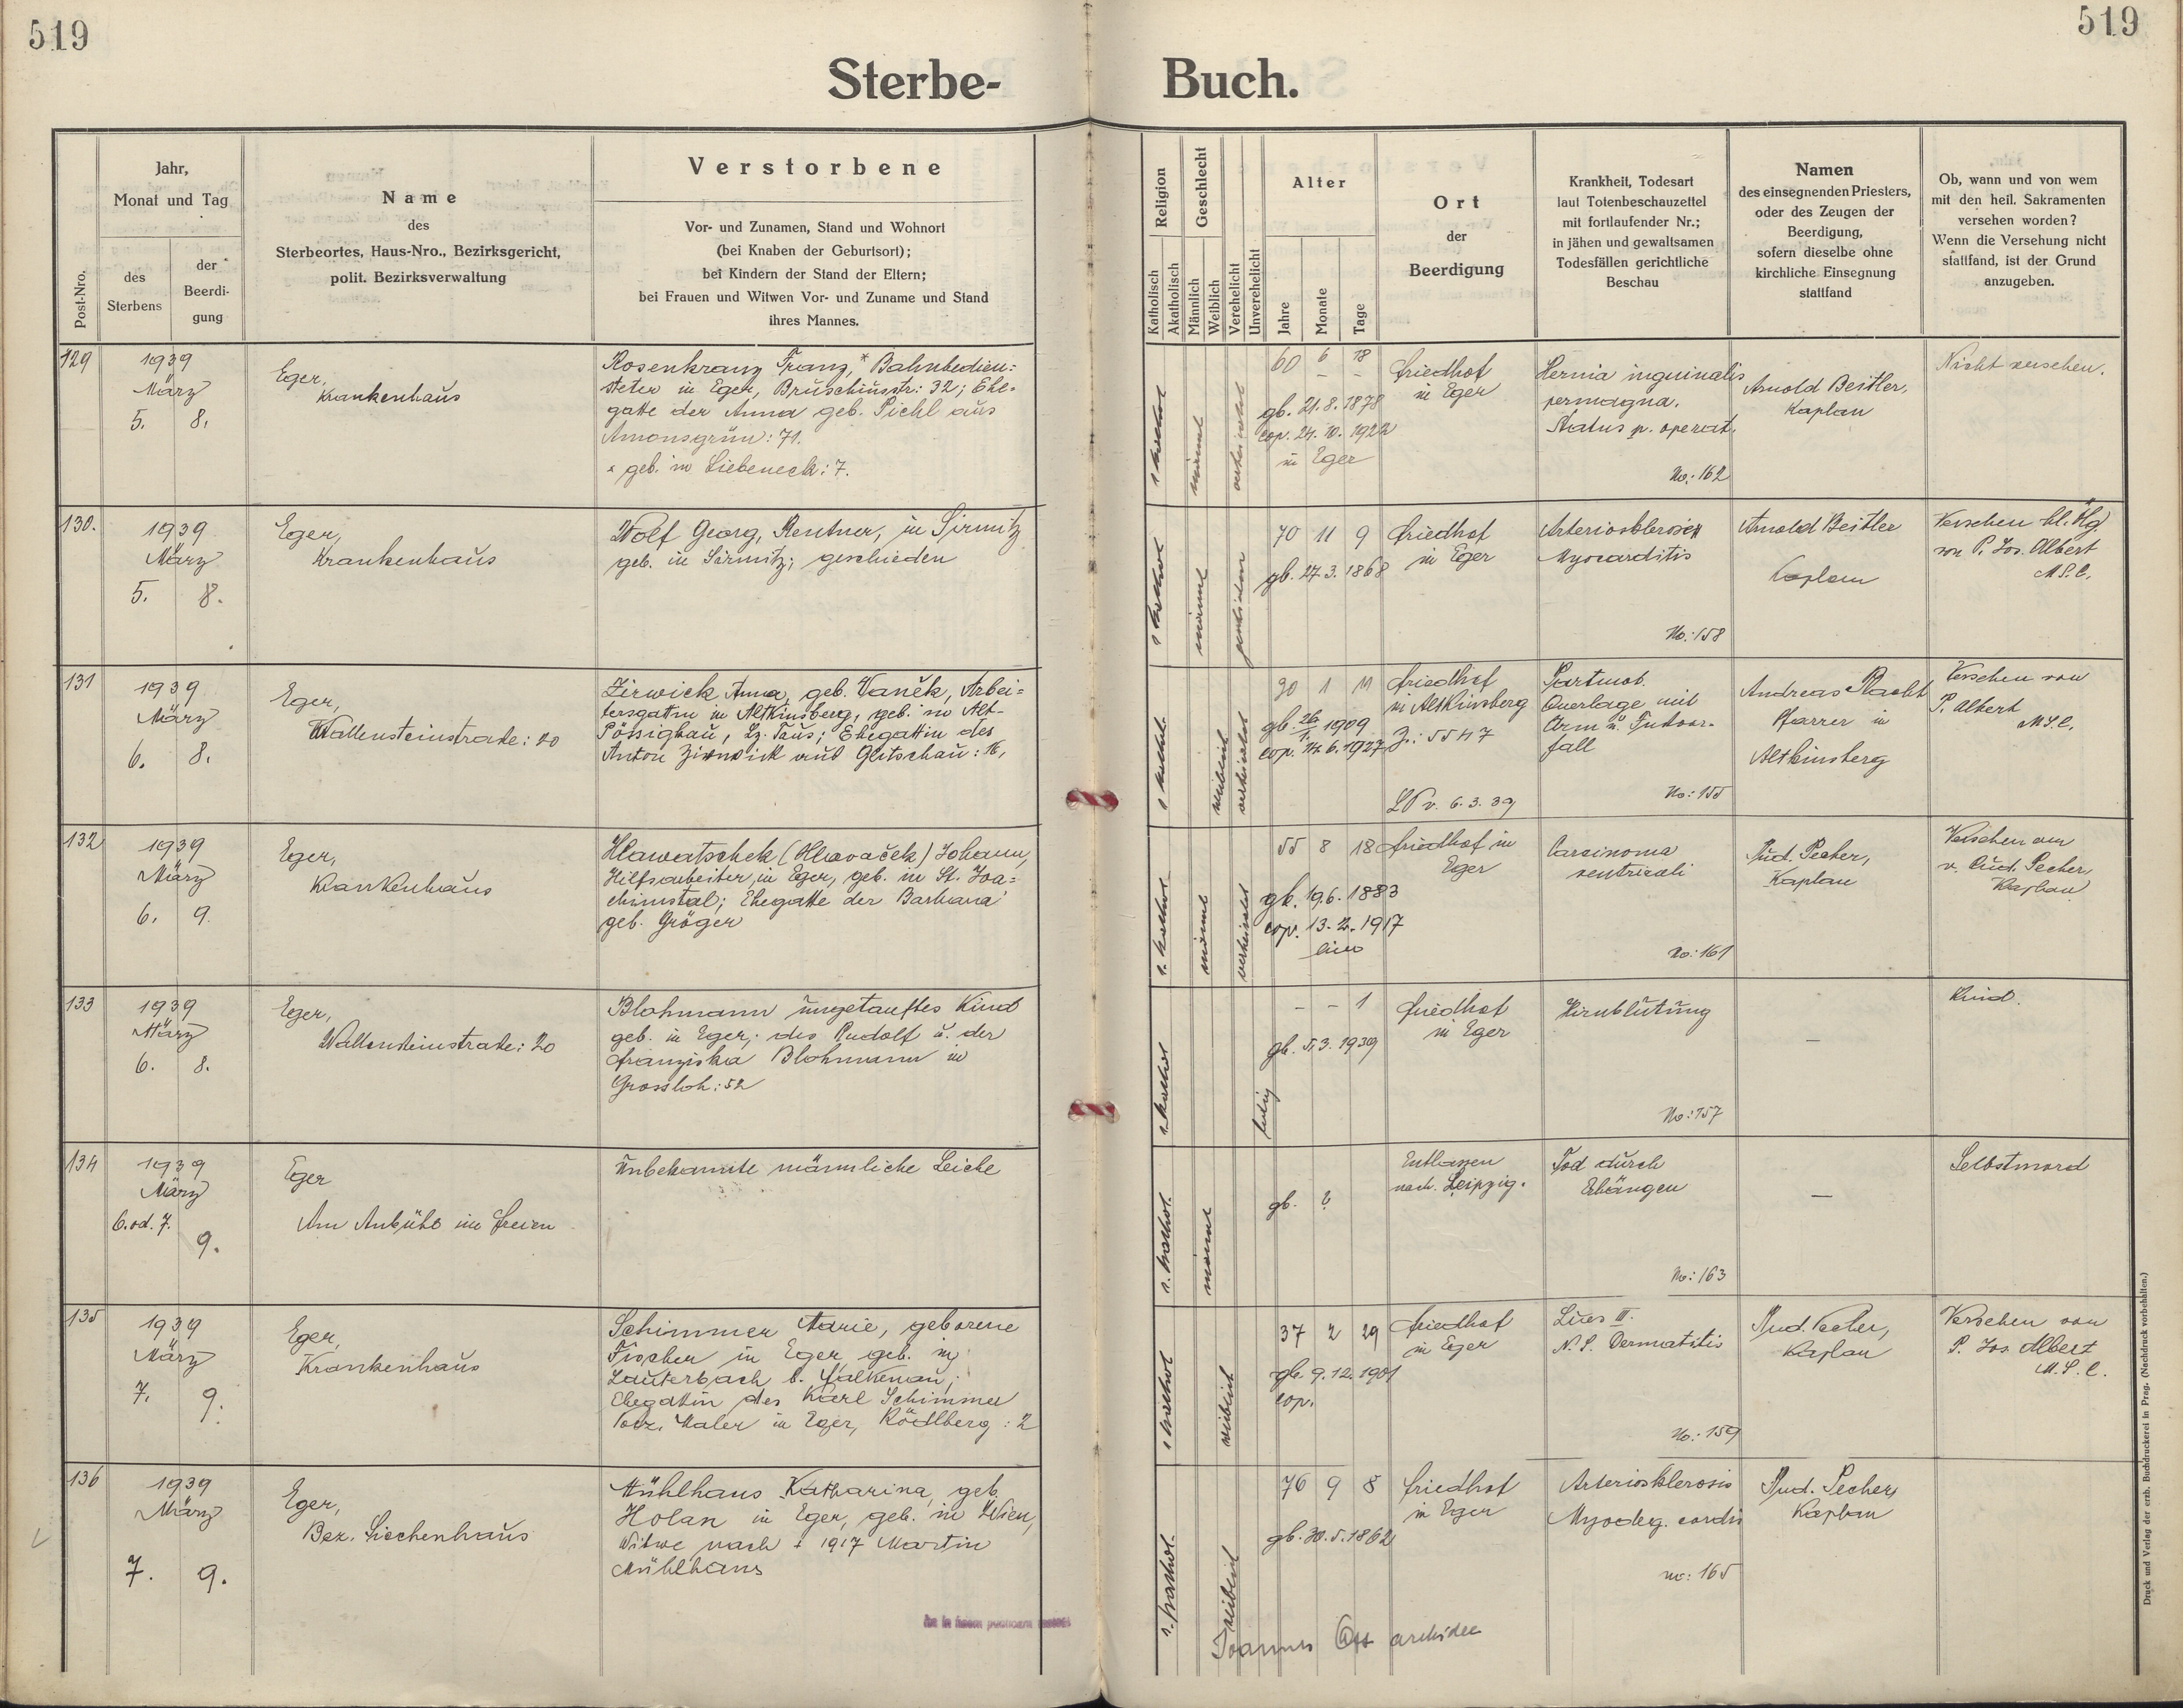 519
519
Sterbe-
Buch.
Post-Nro.
Jahr,
Monat und Tag
des
Sterbens
der
Beerdi-
gung
Name
des
Sterbeortes, Haus-Nro., Bezirksgericht,
polit. Bezirksverwaltung
Verstorbene
Vor- und Zunamen, Stand und Wohnort
(bei Knaben der Geburtsort);
bei Kindern der Stand der Eltern;
bei Frauen und Witwen Vor- und Zuname und Stand
ihres Mannes.
Religion
Katholisch
Akatholisch
Geschlecht
Männlich
Weiblich
Verehelicht
Unverehelicht
Alter
Jahre
Monate
Tage
Ort
der
Beerdigung
Krankheit, Todesart
laut Totenbeschauzettel
mit fortlaufender Nr.;
in jähen und gewaltsamen
Todesfällen gerichtliche
Beschau
Namen
des einsegnenden Priesters,
oder des Zeugen der
Beerdigung,
sofern dieselbe ohne
kirchliche Einsegnung
stattfand
Ob, wann und von wem
mit den heil. Sakramenten
versehen worden?
Wenn die Versehung nicht
stattfand, ist der Grund
anzugeben.
129
1939
März
5. 8.
Eger,
Krankenhaus
Rosenkranz Franz,* Bahnbedien:
steter in Eger, Bruschiusstr: 32; Ehe-
gatte der Anna geb. Pichl aus
Amonsgrün: 71.
* geb. in Liebeneck: 7.
r. kathol.
männl
verheiratet
60 6 18
gb. 21. 8. 1878
cop. 24. 10. 1922
in Eger
Friedhof
in Eger
Hernia inguinalis
permagna.
Status p. operat.
No: 162
Arnold Beitler,
Kaplan
Nicht versehen.
130.
1939
März
5. 8.
Eger,
Krankenhaus
Wolf Georg, Rentner, in Sirmitz
geb. in Sirmitz; geschieden
r. kathol
männl
geschieden
70 11 9
gb. 27. 3. 1868
Friedhof
in Eger
Arteriosklerose
Myocarditis
No: 158
Arnold Beitler
Kaplan
Versehen hl. Ölg
von P. Jos. Albert
M.S.C.
131
1939
März
6. 8.
Eger,
Wallensteinstraße: 20
Zirwick Anna, geb. Vaněk, Arbei=
tersgattin in Altkinsberg, geb. in Alt-
Pössigkau, Bz. Taus; Ehegattin des
Anton Zirwick aus Gatschau: 16,
r. kathol.
weiblich
verheiratet
30 1 11
gb. 26/1. 1909
cop. 14. 6. 1927
Friedhof
in Altkinsberg
Z.: 5547
LP v. 6. 3. 39
Partmob.
Querlage mit
Arm u.
fall
No: 155
Andreas
Pfarrer in
Altkinsberg
Versehen von
P. Albert
M.S.C.
132
1939
März
6. 9.
Eger,
Krankenhaus
Hlawatschek (Hlavaček) Johann,
Hilfsarbeiter in Eger, geb. in St. Joa=
chimstal; Ehegatte der Barbara
geb. Gröger
r. kathol.
männl
verheiratet
55 8 18
gb. 19.6. 1883
cop. 13. 2. 1917
Friedhof in
Eger
Carcinoma
ventriculi
No: 161
Rud. Pecher,
Kaplan
Versehen
v. Rud. Pecher,
Kaplan
133
1939
März
6. 8.
Eger,
Wallensteinstraße: 20
Blohmann ungetauftes Kind
geb. in Eger; des Rudolf u. der
Franziska Blohmann in
Grossloh: 52
r. kathol
ledig
– – 1
gb. 5. 3. 1939
Friedhof
in Eger
Hirnblutung
No: 157
—
Kind.
134
1939
März
6. od. 7.
9.
Eger
Am Anbühl im Freien
Unbekannte männliche Leiche
r. kathol.
männl
gb. ?
nach Leipzig.
Tod durch
Erhängen
No: 163
—
Selbstmord
135
1939
März
7. 9.
Eger,
Krankenhaus
Schimmer Marie, geborene
Fischer in Eger geb. in
Lauterbach b. Falkenau;
Ehegattin des Karl Schimmer
Porz. Maler in Eger, Rödlberg: 2
r. kathol
weiblich
37 2 29
gb. 9. 12. 1901
cop.
Friedhof
in Eger
Lues III.
N. S. Dermatitis
No: 159
Rud. Pecher,
Kaplan
Versehen von
P. Jos. Albert
M.S.C.
136
1939
März
7. 9.
Eger,
Bez. Siechenhaus
Mühlhaus Katharina, geb.
Holan in Eger, geb. in Wien,
Witwe nach † 1917 Martin
Mühlhaus
r. kathol.
weiblich
76 9 8
gb. 30. 5. 1862
Friedhof
in Eger
Arteriosklerosis
Myodeg. cordis
no: 165
Rud. Pecher,
Kaplan
Joannes Ott archidec
Druck und Verlag der erzb. Buchdruckerei in Prag. (Nachdruck vorbehalten.)